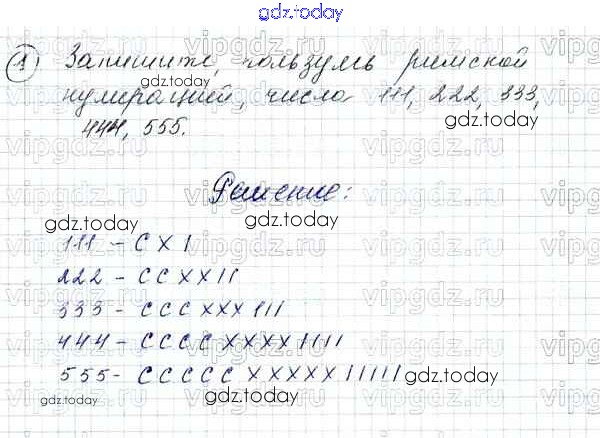 gdz.today
① Запишите, пользуясь римской
нумерацией, числа 111, 222, 333,
444, 555.
Решение:
111 - C X I
222 - C C X X I I
333 - C C C X X X I I I
444 - C C C C X X X X I I I I
555 - C C C C C X X X X X I I I I I
gdz.today
gdz.today
gdz.today
gdz.today
gdz.today
gdz.today
gdz.today
gdz.today
gdz.today
vipgdz.ru